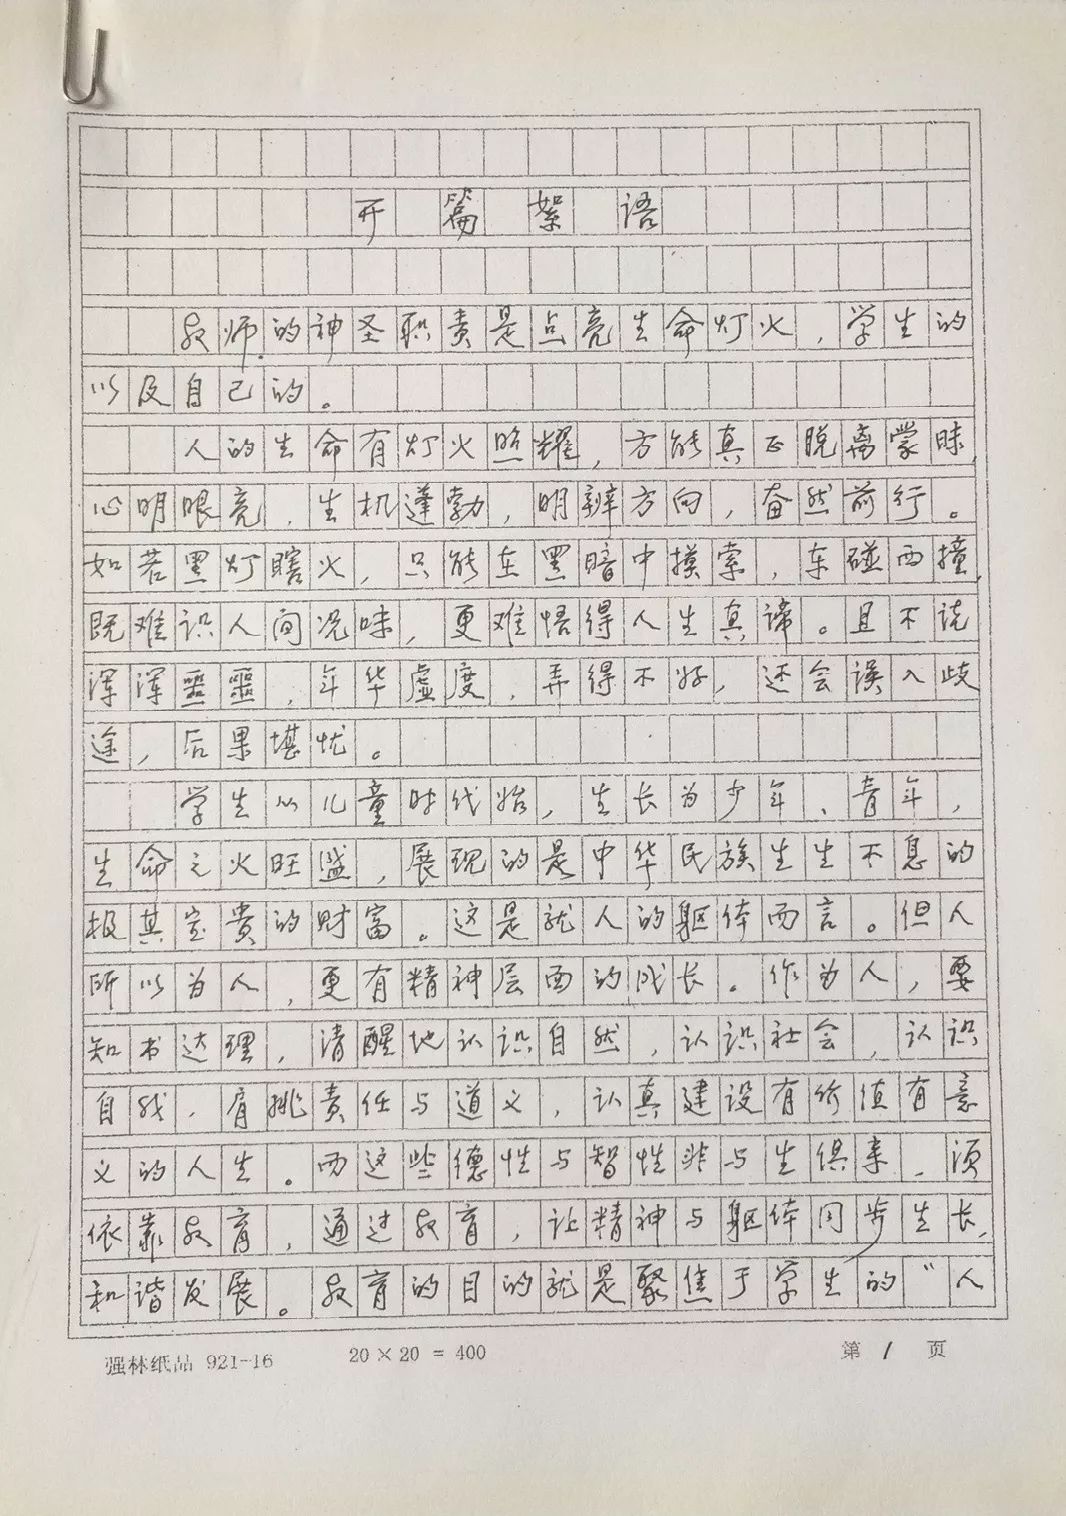 开篇絮语
教师的神圣职责是点亮生命灯火，学生的
以及自己的。
人的生命有灯火照耀，方能真正脱离蒙昧，
心明眼亮，生机蓬勃，明辨方向，奋然前行。
如若黑灯瞎火，只能在黑暗中摸索，东碰西撞，
既难识人间况味，更难悟得人生真谛。且不说
浑浑噩噩，年华虚度，弄得不好，还会误入歧
途，后果堪忧。
学生从儿童时代始，生长为少年、青年，
生命之火旺盛，展现的是中华民族生生不息的
极其宝贵的财富。这是就人的躯体而言。但人
所以为人，更有精神层面的成长。作为人，要
知书达理，清醒地认识自然，认识社会，认识
自我，肩挑责任与道义，认真建设有价值有意
义的人生。而这些德性与智性非与生俱来，须
依靠教育，通过教育，让精神与躯体同步生长，
和谐发展。教育的目的就是聚焦于学生的“人
强林纸品 921-16 20×20=400 第 1 页